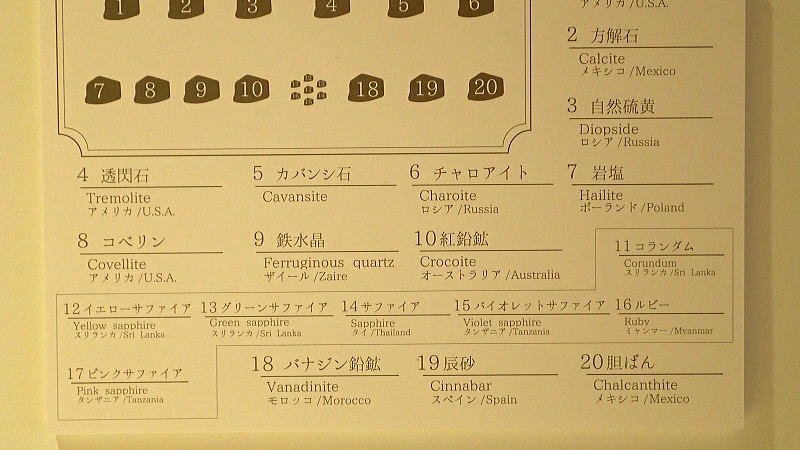 1 2 3 4 5 6
アメリカ/U.S.A.
2 方解石
Calcite
メキシコ/Mexico
7 8 9 10 18 19 20
3 自然硫黄
Diopside
ロシア/Russia
4 透閃石
Tremolite
アメリカ/U.S.A.
5 カバンシ石
Cavansite
6 チャロアイト
Charoite
ロシア/Russia
7 岩塩
Hailite
ポーランド/Poland
8 コベリン
Covellite
アメリカ/U.S.A.
9 鉄水晶
Ferruginous quartz
ザイール/Zaire
10 紅鉛鉱
Crocoite
オーストラリア/Australia
11 コランダム
Corundum
スリランカ/Sri Lanka
12 イエローサファイア
Yellow sapphire
スリランカ/Sri Lanka
13 グリーンサファイア
Green sapphire
スリランカ/Sri Lanka
14 サファイア
Sapphire
タイ/Thailand
15 バイオレットサファイア
Violet sapphire
タンザニア/Tanzania
16 ルビー
Ruby
ミャンマー/Myanmar
17 ピンクサファイア
Pink sapphire
タンザニア/Tanzania
18 バナジン鉛鉱
Vanadinite
モロッコ/Morocco
19 辰砂
Cinnabar
スペイン/Spain
20 胆ばん
Chalcanthite
メキシコ/Mexico